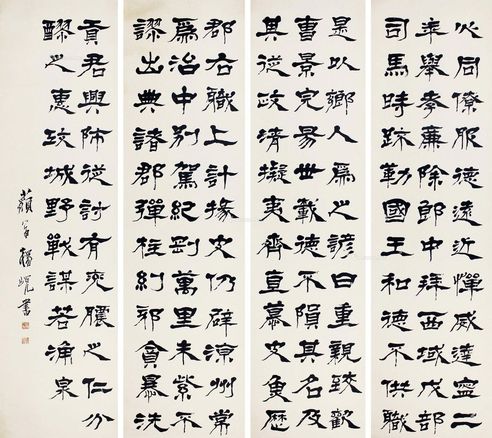 以同僚服德遠近憚威建寧二
年舉孝廉除郎中拜西域戊部
司馬時疏勒國王和德不供職
是以鄉人為之諺曰重親致歡
曹景完易世載德不隕其名及
其從政清擬夷齊直慕史魚歷
郡右職上計掾史仍辟涼州常
為治中別駕紀綱萬里朱紫不
謬出典諸郡彈枉糾邪貪暴洗
貢君興師征討有兗膿之仁分
醪之惠攻城野戰謀若涌泉
藐翁楊峴書